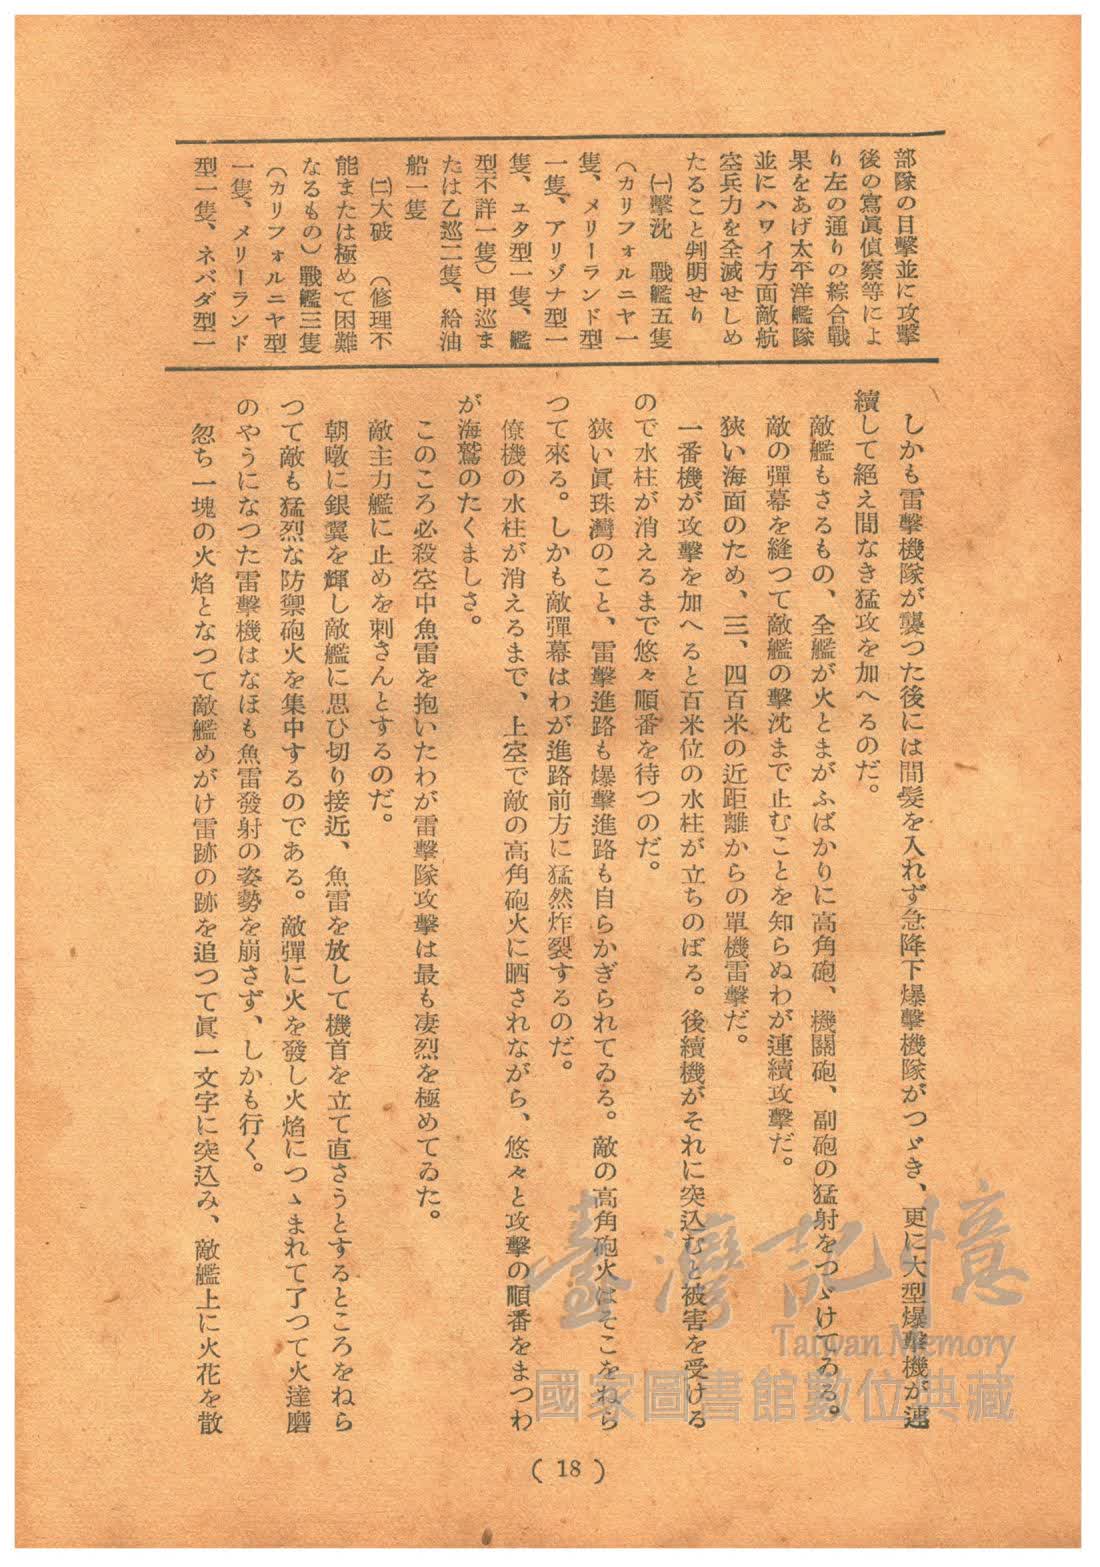 部隊の目擊並に攻擊
後の寫眞偵察等によ
り左の通りの綜合戰
果をあげ太平洋艦隊
並にハワイ方面敵航
空兵力を全滅せしめ
たること判明せり
㈠擊沈　戰艦五隻
（カリフォルニヤ一
隻、メリーランド型
一隻、アリゾナ型一
隻、ユタ型一隻、艦
型不詳一隻）甲巡ま
たは乙巡二隻、給油
船一隻
㈡大破　（修理不
能または極めて困難
なるもの）戰艦三隻
（カリフォルニヤ型
一隻、メリーランド
型一隻、ネバダ型一
しかも雷擊機隊が襲つた後には間髪を入れず急降下爆擊機隊がつゞき、更に大型爆擊機が連
續して絶え間なき猛攻を加へるのだ。
敵艦もさるもの、全艦が火とまがふばかりに高角砲、機關砲、副砲の猛射をつゞけてゐる。
敵の彈幕を縫つて敵艦の擊沈まで止むことを知らぬわが連續攻擊だ。
狹い海面のため、三、四百米の近距離からの單機雷擊だ。
一番機が攻擊を加へると百米位の水柱が立ちのぼる。後續機がそれに突込むと被害を受ける
ので水柱が消えるまで悠々順番を待つのだ。
狹い眞珠灣のこと、雷擊進路も爆擊進路も自らかぎられてゐる。敵の高角砲火はそこをねら
つて來る。しかも敵彈幕はわが進路前方に猛然炸裂するのだ。
僚機の水柱が消えるまで、上空で敵の高角砲火に晒されながら、悠々と攻擊の順番をまつわ
が海鷲のたくましさ。
このころ必殺空中魚雷を抱いたわが雷擊隊攻擊は最も凄烈を極めてゐた。
敵主力艦に止めを刺さんとするのだ。
朝暾に銀翼を輝し敵艦に思ひ切り接近、魚雷を放して機首を立て直さうとするところをねら
つて敵も猛烈な防禦砲火を集中するのである。敵彈に火を發し火焰につゝまれて了つて火達磨
のやうになつた雷擊機はなほも魚雷發射の姿勢を崩さず、しかも行く。
忽ち一塊の火焰となつて敵艦めがけ雷跡の跡を追つて眞一文字に突込み、敵艦上に火花を散
( 18 )
臺灣記憶
Taiwan Memory
國家圖書館數位典藏